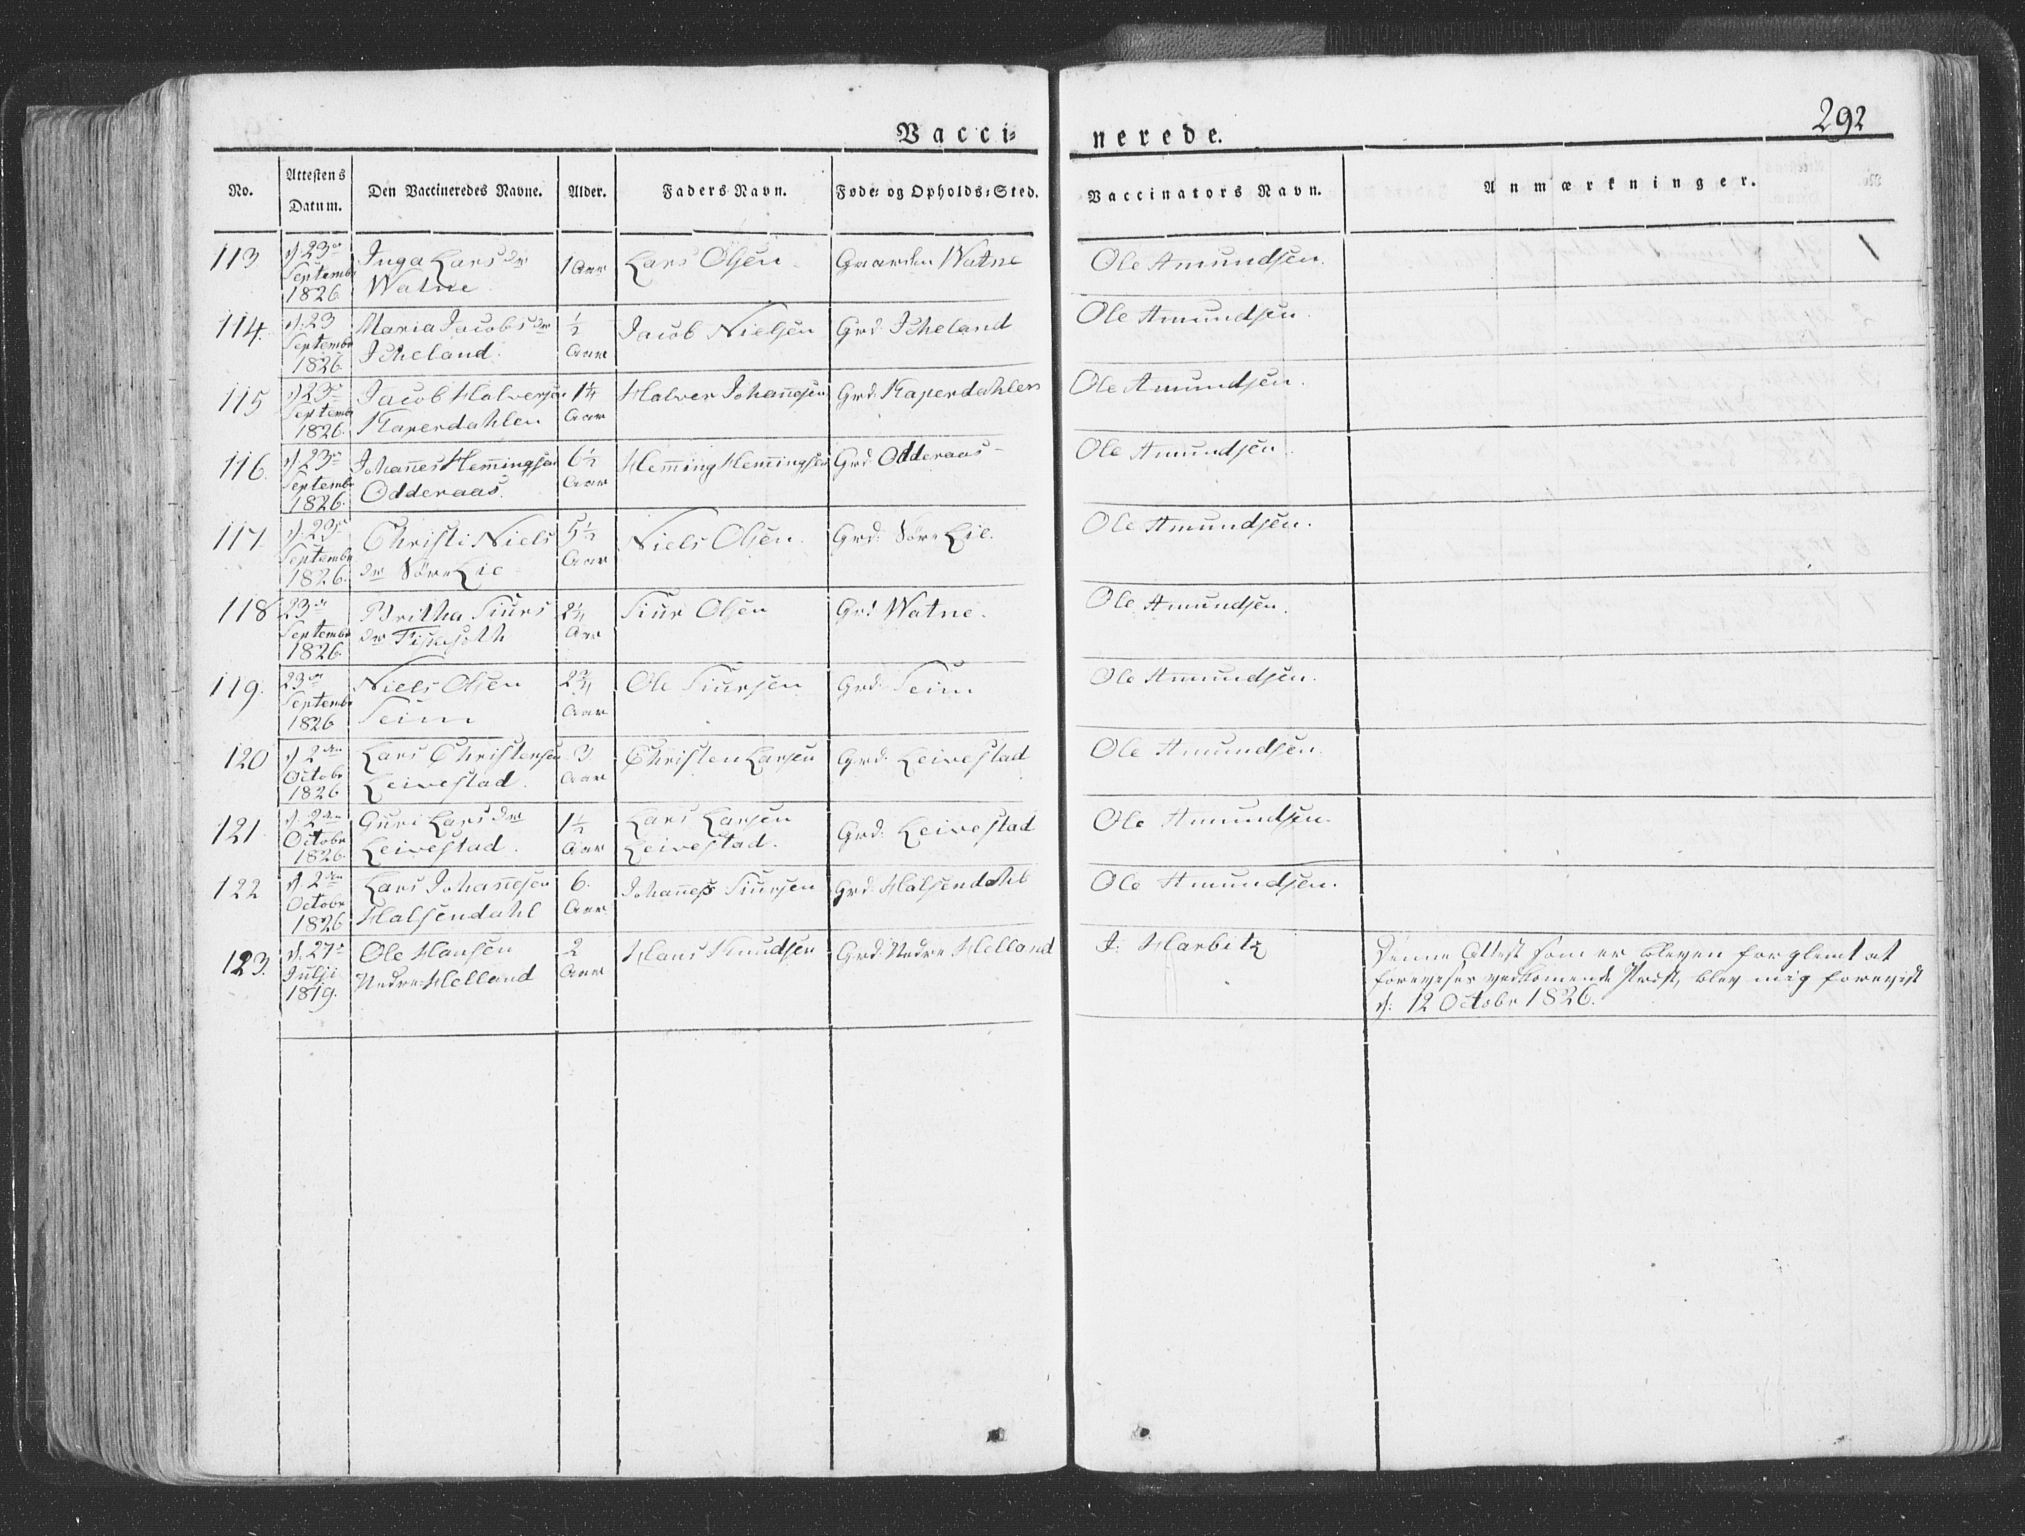 292
Vacci=
nerede.
No.
Attestens Datum.
Den Vaccineredes Navne.
Alder.
Faders Navn.
Føde- og Opholds-Sted.
Vaccinators Navn.
Anmærkninger.
113 d. 23de Septembr 1826 Inga Larsdr Watne 1 Aar Lars Olsen Gaarden Watne Ole Amundsen.
114. d. 23 Septembr 1826. Maria Jacobsdr Icheland. ½ Aar Jacob Nielsen Grd: Icheland Ole Amundsen.
115 d. 23de Septembr 1826. Jacob Halversen Kaperdahlen 1¼ Aar Halver Johannesen Grd: Kaperdahlen Ole Amundsen.
116. d. 23de Septembr 1826. Johannes Hemmingsen Odderaas. 6½ Aar Hemming Hemmingsen Grd Odderaas Ole Amundsen.
117. d. 23de Septembr 1826. Christi Nielsdr Nore Lie 5½ Aar Niels Olsen. Grd: Nore Lie. Ole Amundsen.
118 23de Septembr 1826. Britha Siursdr 2¼ Aar Siur Olsen Grd Watne. Ole Amundsen.
119. 23de Septembr 1826 Niels Olsen Seim 2¾ Aar Ole Siursen Grd: Seim Ole Amundsen.
120 d. 2den Octobr 1826 Lars Christensen Leivestad. 3 Aar Christen Larsen Grd: Leivestad Ole Amundsen.
121. d. 2den Octobr 1826. Guri Larsdr Leivestad. 1½ Aar Lars Larsen Leivestad. Grd: Leivestad Ole Amundsen.
122 d. 2den Octobr 1826 Lars Johannesen Halsendahl 6. Aar Johannes Siursen Grd: Halsendahl Ole Amundsen.
123. d. 27de Julji 1819. Ole Hansen Nedre-Helland 2 Aar Hans Knudsen Grd: Nedre Helland J: Harbitz Denne Attest som er bleven forglemt at
forevises vedkomende Præst, blev mig forevist
d: 12 Octobr 1826.